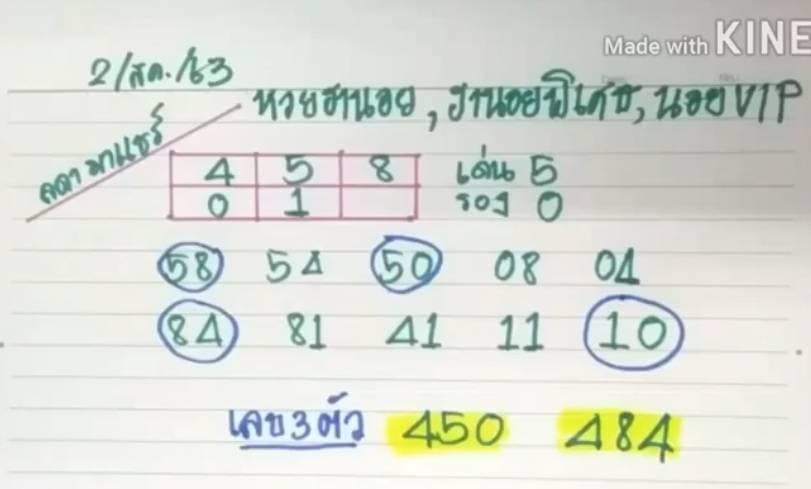 Made with KINE
2/สค./63
หวยฮานอย, ฮานอยพิเศษ, นอยVIP
ลดา มาแชร์
4 5 8 เด่น 5
0 1 รอง 0
58 54 50 08 04
84 81 41 11 10
เลข3ตัว 450 484